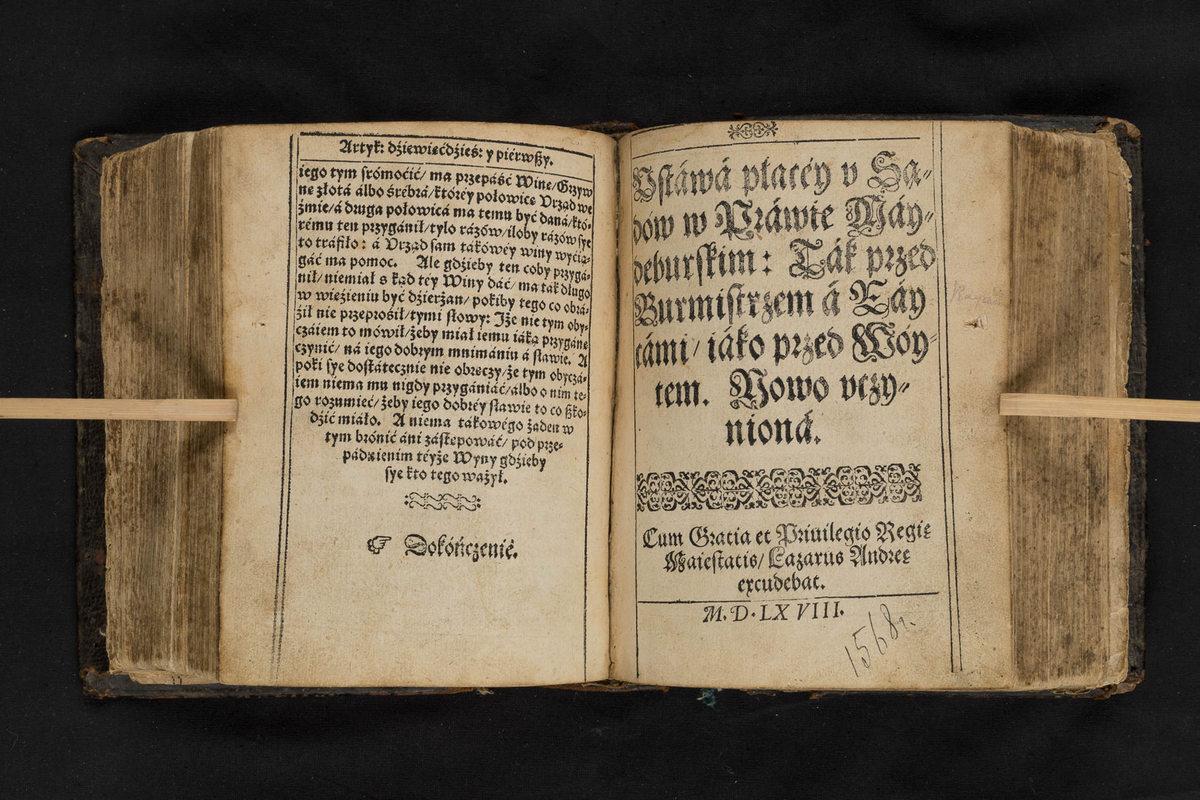 Artyk: dźiewiećdźieś: y piérwßy.
iego tym srómoćić/ ma przepáść Wine/ Grzyw
ne złotá álbo śrebrá/ któréy połowice Vrząd we
źmie/ á druga połowicá ma temu być daná/ któ-
rému ten przygánił/ tylo rázów/ iloby rázów sye
to tráfiło: á Vrząd sam takowéy winy wyćią-
gáć ma pomoc. Ale gdźieby ten coby przygá-
nił/ niemiał s kąd téy Winy dáć/ ma ták długo
w wieźieniu być dźierżan/ pokiby tego co obrá-
źił nie przeprośił/ tymi słowy: Jże nie tym oby-
czáiem to mówił/ żeby miał iemu iáką przygáne
czynić/ ná iego dobrym mnimániu á sławie. A
poki sye dostátecznie nie obrzeczy/ że tym obyczá-
iem niema mu nigdy przygániáć/ albo o nim te-
go rozumieć/ żeby iego dobréy sławie to co ßko-
dźić miáło. A niema takowégo żaden w
tym brónić áni zástepowáć/ pod prze-
padzienim téyże Wyny gdźieby
sye kto tego ważył.
☞ Dokończenié.
Vstáwá płacéy v Są-
dów w Práwie Máy-
deburskim: Ták przed
Burmistrzem á Ráy
cámi/ iáko przed Wóy-
tem. Nowo vczy-
nioná.
Cum Gratia et Priuilegio Regię
Maiestatis/ Lazarus Andreę
excudebat.
M. D. LX VIII.
1568 r.